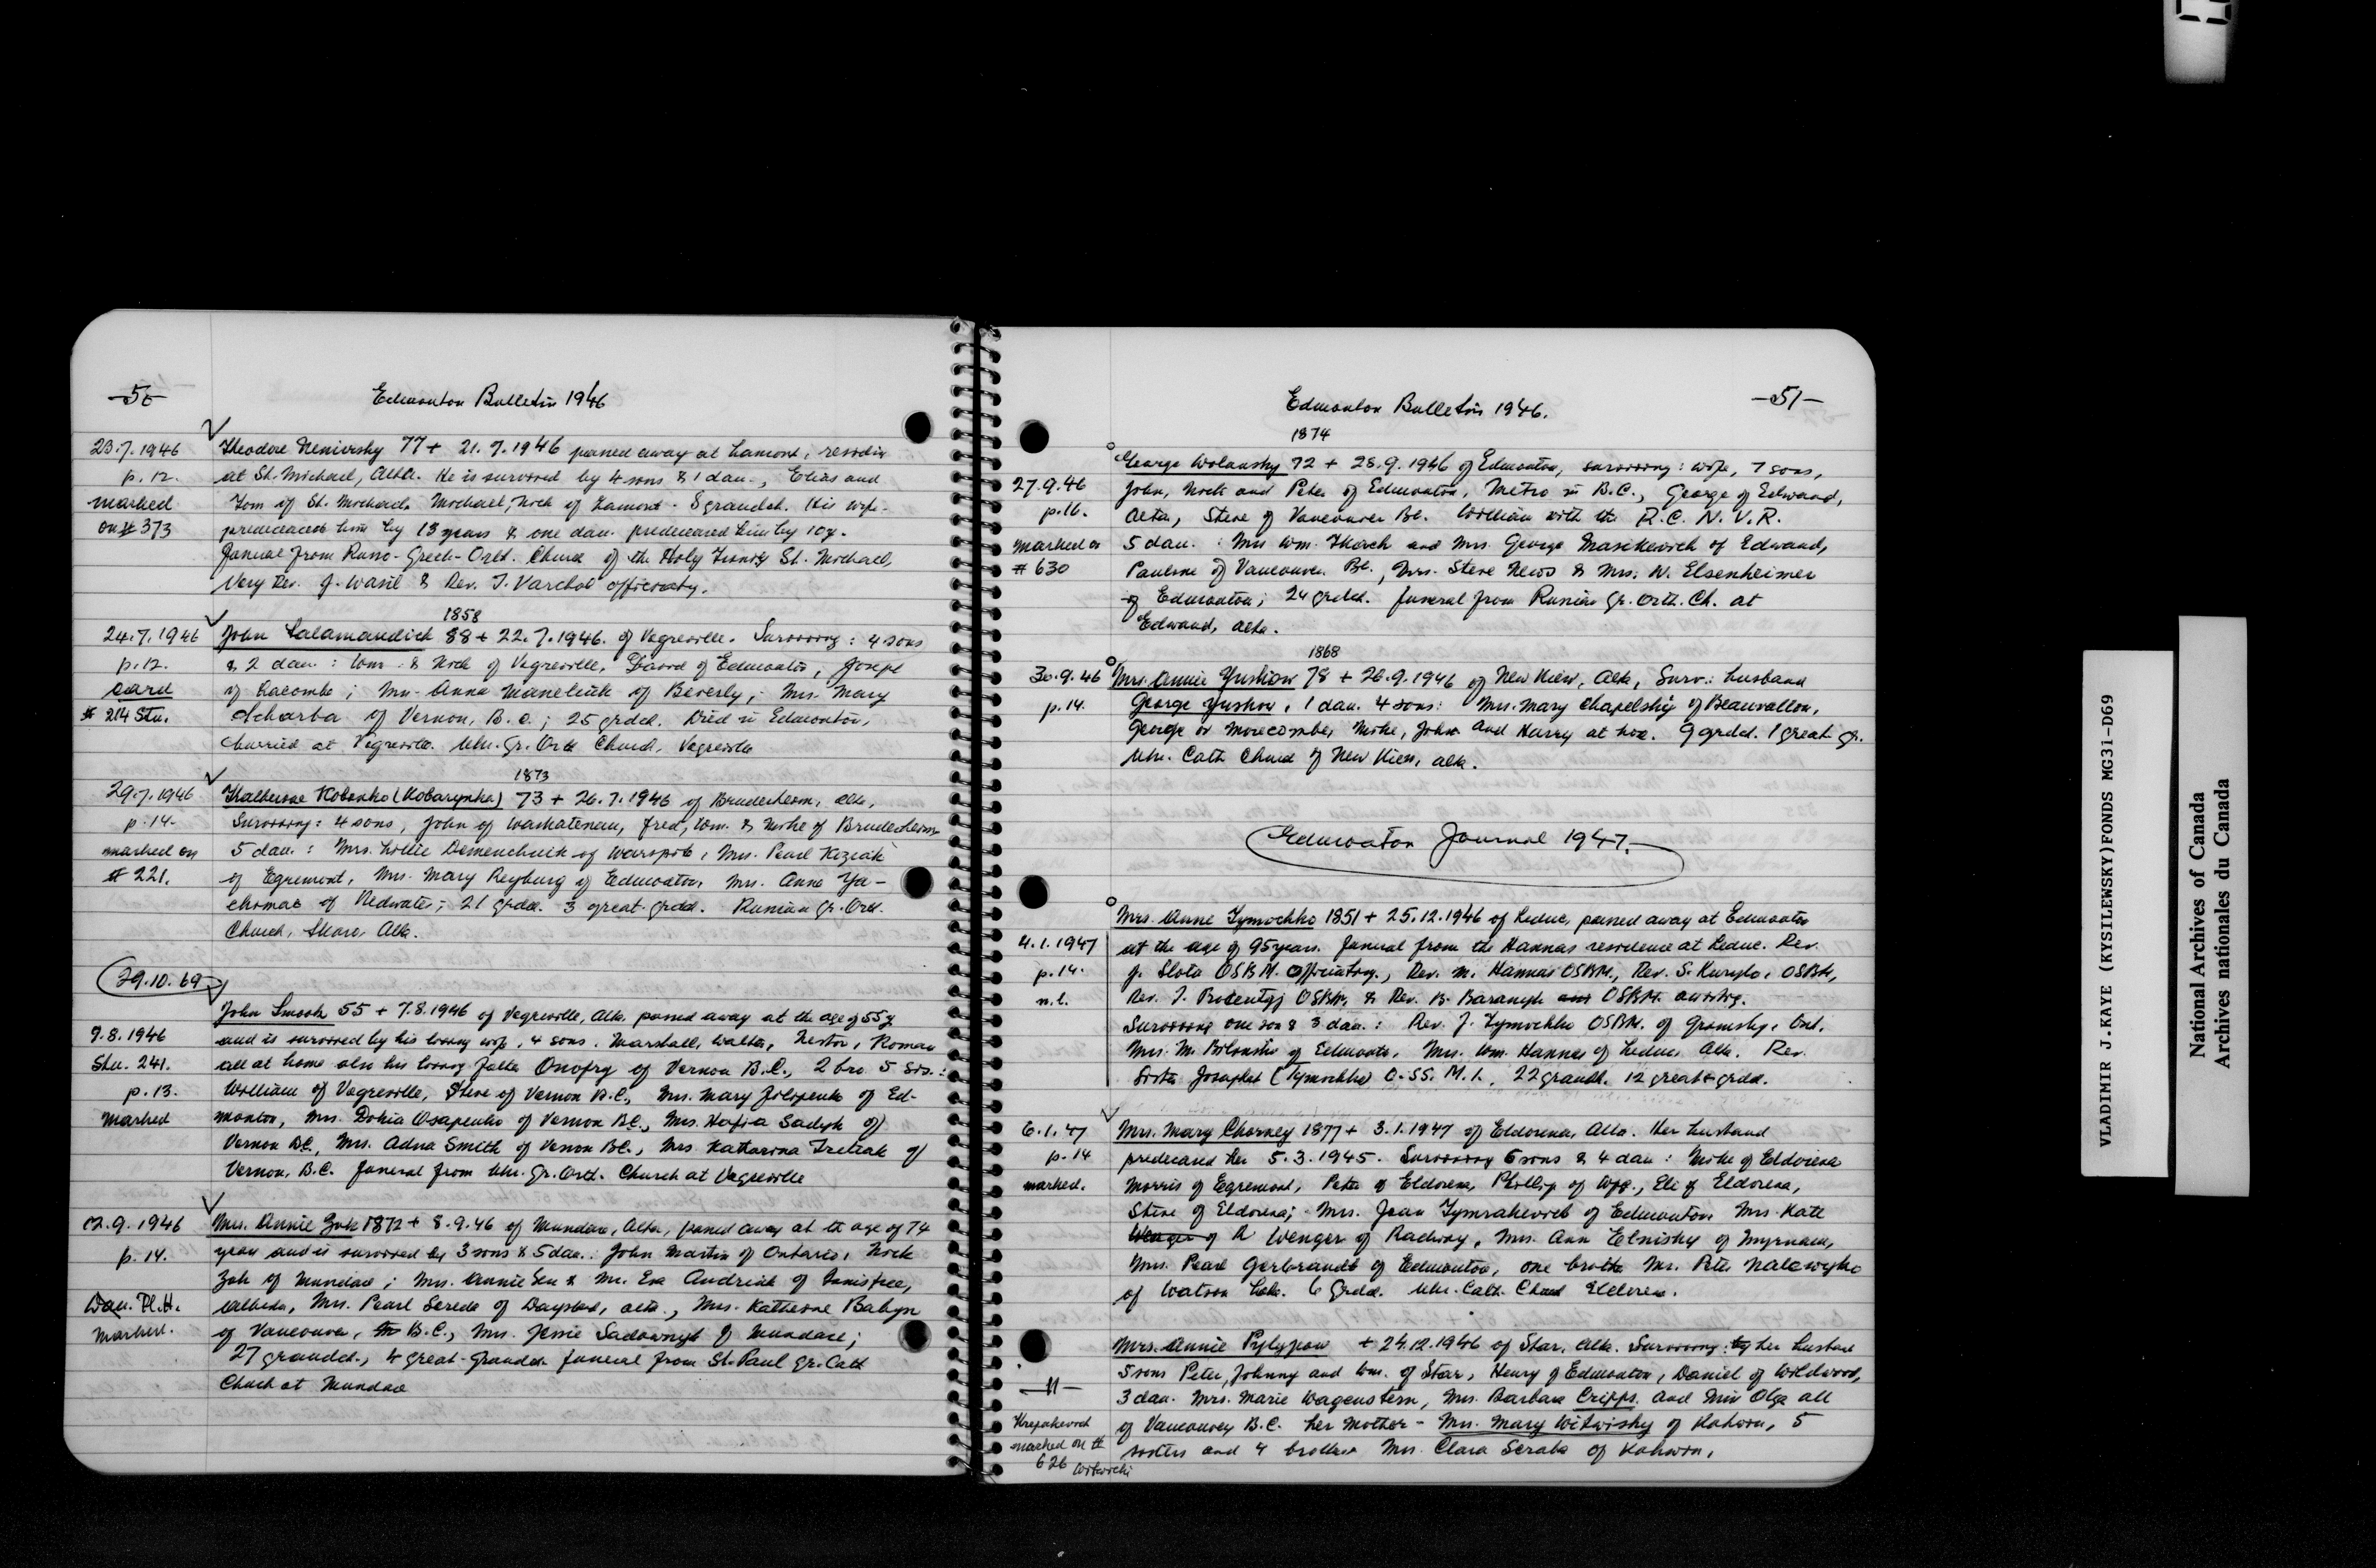 -50-
Edmonton Bulletin 1946
23.7.1946
p. 12.
marked
on # 373
Theodore Nemirsky 77 + 21.7.1946 passed away at Lamont, residin
at St. Michael, Alta. He is survived by 4 sons & 1 dau., Elias and
Tom of St. Michael, Michael, Nick of Lamont. 8 grandch. His wife
predeceased him by 13 years & one dau. predeceased him by 10 y.
Funeral from Russo-Greek-Orth. Church of the Holy Trinity St. Michael,
Very Rev. J. Wasil & Rev. T. Varchol officiatg.
24.7.1946
p. 12.
card
# 214 Stu.
1858
John Salamandick 88 + 22.7.1946. of Vegreville. Surviving: 4 sons
& 2 dau.: Wm. & Nick of Vegreville, David of Edmonton, Joseph
of Lacombe; Mrs. Anna Maneliuk of Beverly; Mrs. Mary
Scharba of Vernon, B.C.; 25 grdch. Died in Edmonton,
burried at Vegreville. Ukr. Gr. Orth Church, Vegreville
29.7.1946
p. 14.
marked on
# 221.
1873
Katherine Kobenko (Kobarynka) 73 + 26.7.1946 of Bruderheim, Alta,
Surviving: 4 sons, John of Waskatenau, Fred, Wm. & Mike of Bruderheim
5 dau.: Mrs. Lillie Demenchuk of Warspite, Mrs. Pearl Kiziak
of Egremont, Mrs. Mary Reyburg of Edmonton, Mrs. Anne Ya-
chimac of Redwater; 21 grdch. 3 great-grdch. Russian Gr. Orth.
Church, Skaro, Alta.
29.10.69
9.8.1946
Stu. 241.
p. 13.
marked
John Smook 55 + 7.8.1946 of Vegreville, Alta. passed away at the age of 55 y
and is survived by his loving wife, 4 sons. Marshall, Walter, Nestor, Roman
all at home also his loving father Onofry of Vernon B.C., 2 bro 5 sis.:
William of Vegreville, Steve of Vernon B.C., Mrs. Mary Filipenko of Ed-
monton, Mrs. Dokia Osapenko of Vernon B.C., Mrs. Hafia Sadyk of
Vernon BC, Mrs. Adna Smith of Vernon BC., Mrs. Katharina Tretiak of
Vernon, B.C. Funeral from Ukr. Gr. Orth. Church at Vegreville
12.9.1946
p. 14.
Dau. Pl. H.
marked.
Mrs. Annie Zuk 1872 + 8.9.46 of Mundare, Alta, passed away at the age of 74
years and is survived by 3 sons & 5 dau.: John Martin of Ontario, Nick
Zuk of Mundare; Mrs. Annie Sen & Mrs. Eva Andriuk of Innisfree,
Alberta, Mrs. Pearl Sereda of Daysland, Alta., Mrs. Katherine Babyn
of Vancouver, B.C., Mrs. Jessie Sadownyk of Mundare;
27 grandch., 4 great-grandch. Funeral from St. Paul Gr. Cath
Church at Mundare
Edmonton Bulletin 1946.
-51-
27.9.46
p. 16.
marked on
# 630
1874
George Wolansky 72 + 23.9.1946 of Edmonton, surviving: wife, 7 sons,
John, Nick and Peter of Edmonton, Metro in B.C., George of Edwand,
Alta, Steve of Vancouver BC. William with the R.C.N.V.R.
5 dau.: Mrs Wm. Tkach and Mrs. George Masikevich of Edwand,
Pauline of Vancouver BC., Mrs. Steve News & Mrs. W. Elsenheimer
of Edmonton; 24 grdch. Funeral from Russian Gr. Orth. Ch. at
Edwand, Alta.
30.9.46
p. 14.
1868
Mrs. Annie Yushow 78 + 26.9.1946 of New Kiew, Alta, Surv.: husband
George Yushow, 1 dau. 4 sons: Mrs. Mary Chapelsky of Beauvallon,
George in Morecombe, Mike, John and Harry at home. 9 grdch. 1 great-gr.
Ukr. Cath Church of New Kiew, Alta.
Edmonton Journal 1947.
4.1.1947
p. 14.
n.l.
Mrs. Anne Tymochko 1851 + 25.12.1946 of Leduc, passed away at Edmonton
at the age of 95 years. Funeral from the Hannas residence at Leduc. Rev.
J. Slota OSBM. Officiatng., Rev. M. Hannas OSBM., Rev. S. Kurylo, OSBM,
Rev. T. Procentyj OSBM, & Rev. B. Baranyk OSBM. assistg.
Surviving one son & 3 dau.: Rev. J. Tymochko OSBM. of Grimsby, Ont.
Mrs. M. Bilinski of Edmonton, Mrs. Wm. Hannas of Leduc, Alta. Rev.
Sister Josaphat (Tymochko) O.SS.M.I., 22 grandh. 12 great grdch.
6.1.47
p. 14
marked.
Mrs. Mary Chorney 1877 + 3.1.1947 of Eldorena, Alta. Her husband
predeceased her 5.3.1945. Surviving 6 sons & 4 dau: Mike of Eldorena
Morris of Egremont, Peter of Eldorena, Phillip of Wpg., Eli of Eldorena,
Steve of Eldorena; Mrs. Jean Tymrakevich of Edmonton Mrs. Kate
Wenger of R Wenger of Radway, Mrs. Ann Elnisky of Myrnam,
Mrs. Pearl Gerbrandt of Edmonton, one brother Mr. Peter Nalewyko
of Watson Lake. 6 Grdch. Ukr. Cath. Church Eldorena.
-11-
Krepakevich
marked on #
626 Witwicki
Mrs. Annie Pylypow + 24.12.1946 of Star, Alta. Surviving: by her husband
5 sons Peter, Johnny and Wm. of Star, Henry of Edmonton, Daniel of Wildwood,
3 dau. Mrs. Marie Wagenstern, Mrs. Barbara Cripps, and Miss Olga all
of Vancouver B.C. her mother - Mrs. Mary Witwisky of Kahwin, 5
sisters and 4 brothers Mrs. Clara Scraba of Kahwin,
VLADIMIR J.KAYE (KYSILEWSKY)FONDS MG31-D69
National Archives of Canada
Archives nationales du Canada